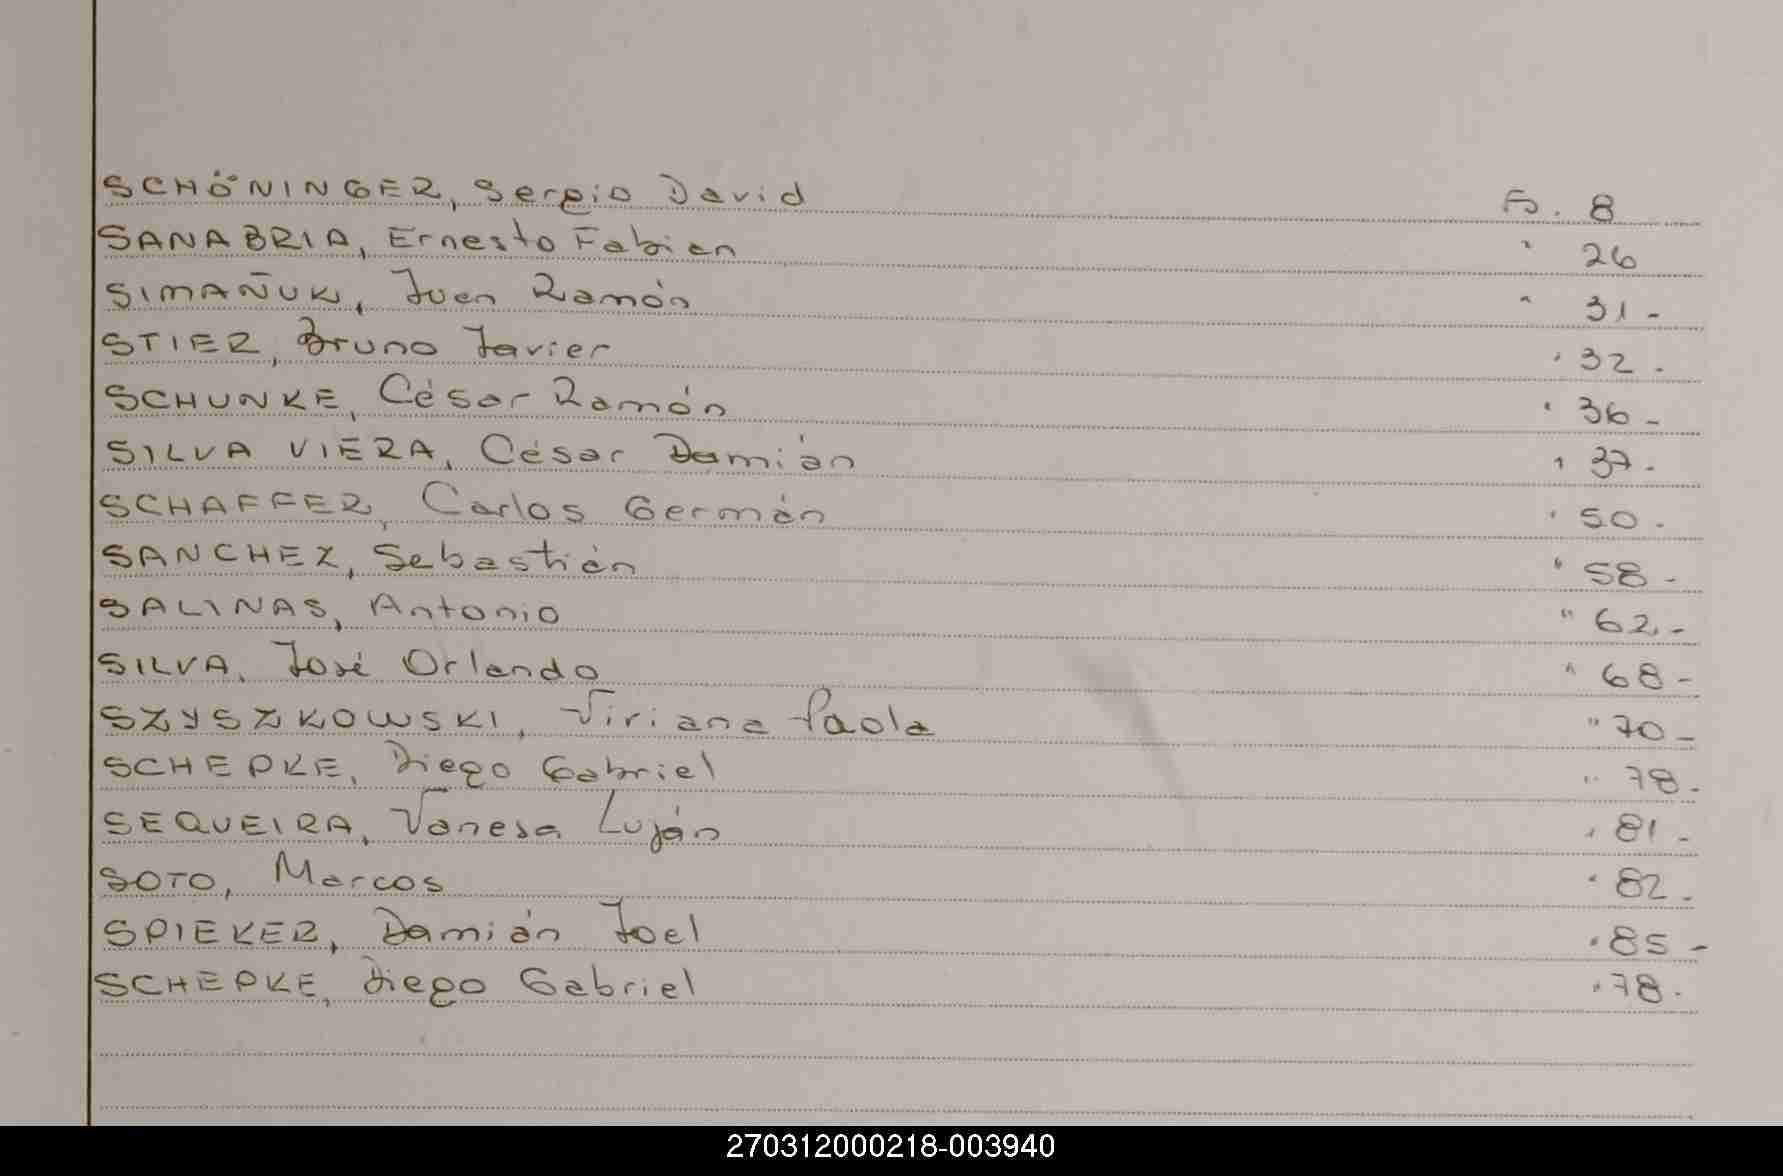 SCHÖNINGER, Sergio David Fo. 8
SANABRIA, Ernesto Fabian " 26
SIMAÑUK, Juan Ramón " 31-
STIER, Bruno Javier " 32.
SCHUNKE, César Ramón " 36-
SILVA VIERA, César Damián " 37.
SCHAFFER, Carlos Germán " 50.
SANCHEZ, Sebastián " 58-
SALINAS, Antonio " 62-
SILVA, José Orlando " 68-
SZYSZKOWSKI, Viriana Paola " 70-
SCHEPKE, Diego Gabriel " 78.
SEQUEIRA, Vanesa Luján " 81-
SOTO, Marcos " 82.
SPIEKER, Damián Joel " 85-
SCHEPKE, Diego Gabriel " 78.
270312000218-003940